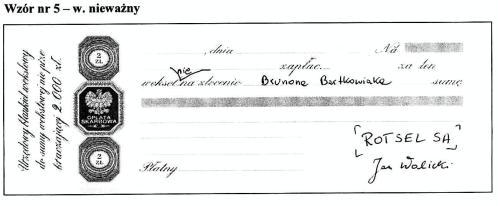 Wzór nr 5 – w. nieważny
2
ZŁ
OPŁATA
SKARBOWA
2
ZŁ
Urzędowy blankiet wekslowy
do sumy wekslowej nie prze-
kraczającej 2.000 zł.
, dnia Na
zapłac za ten
nie
weksel na zlecenie Brunona Bartkowiaka sumę
ROTSEL SA
Jan Walicki
Płatny